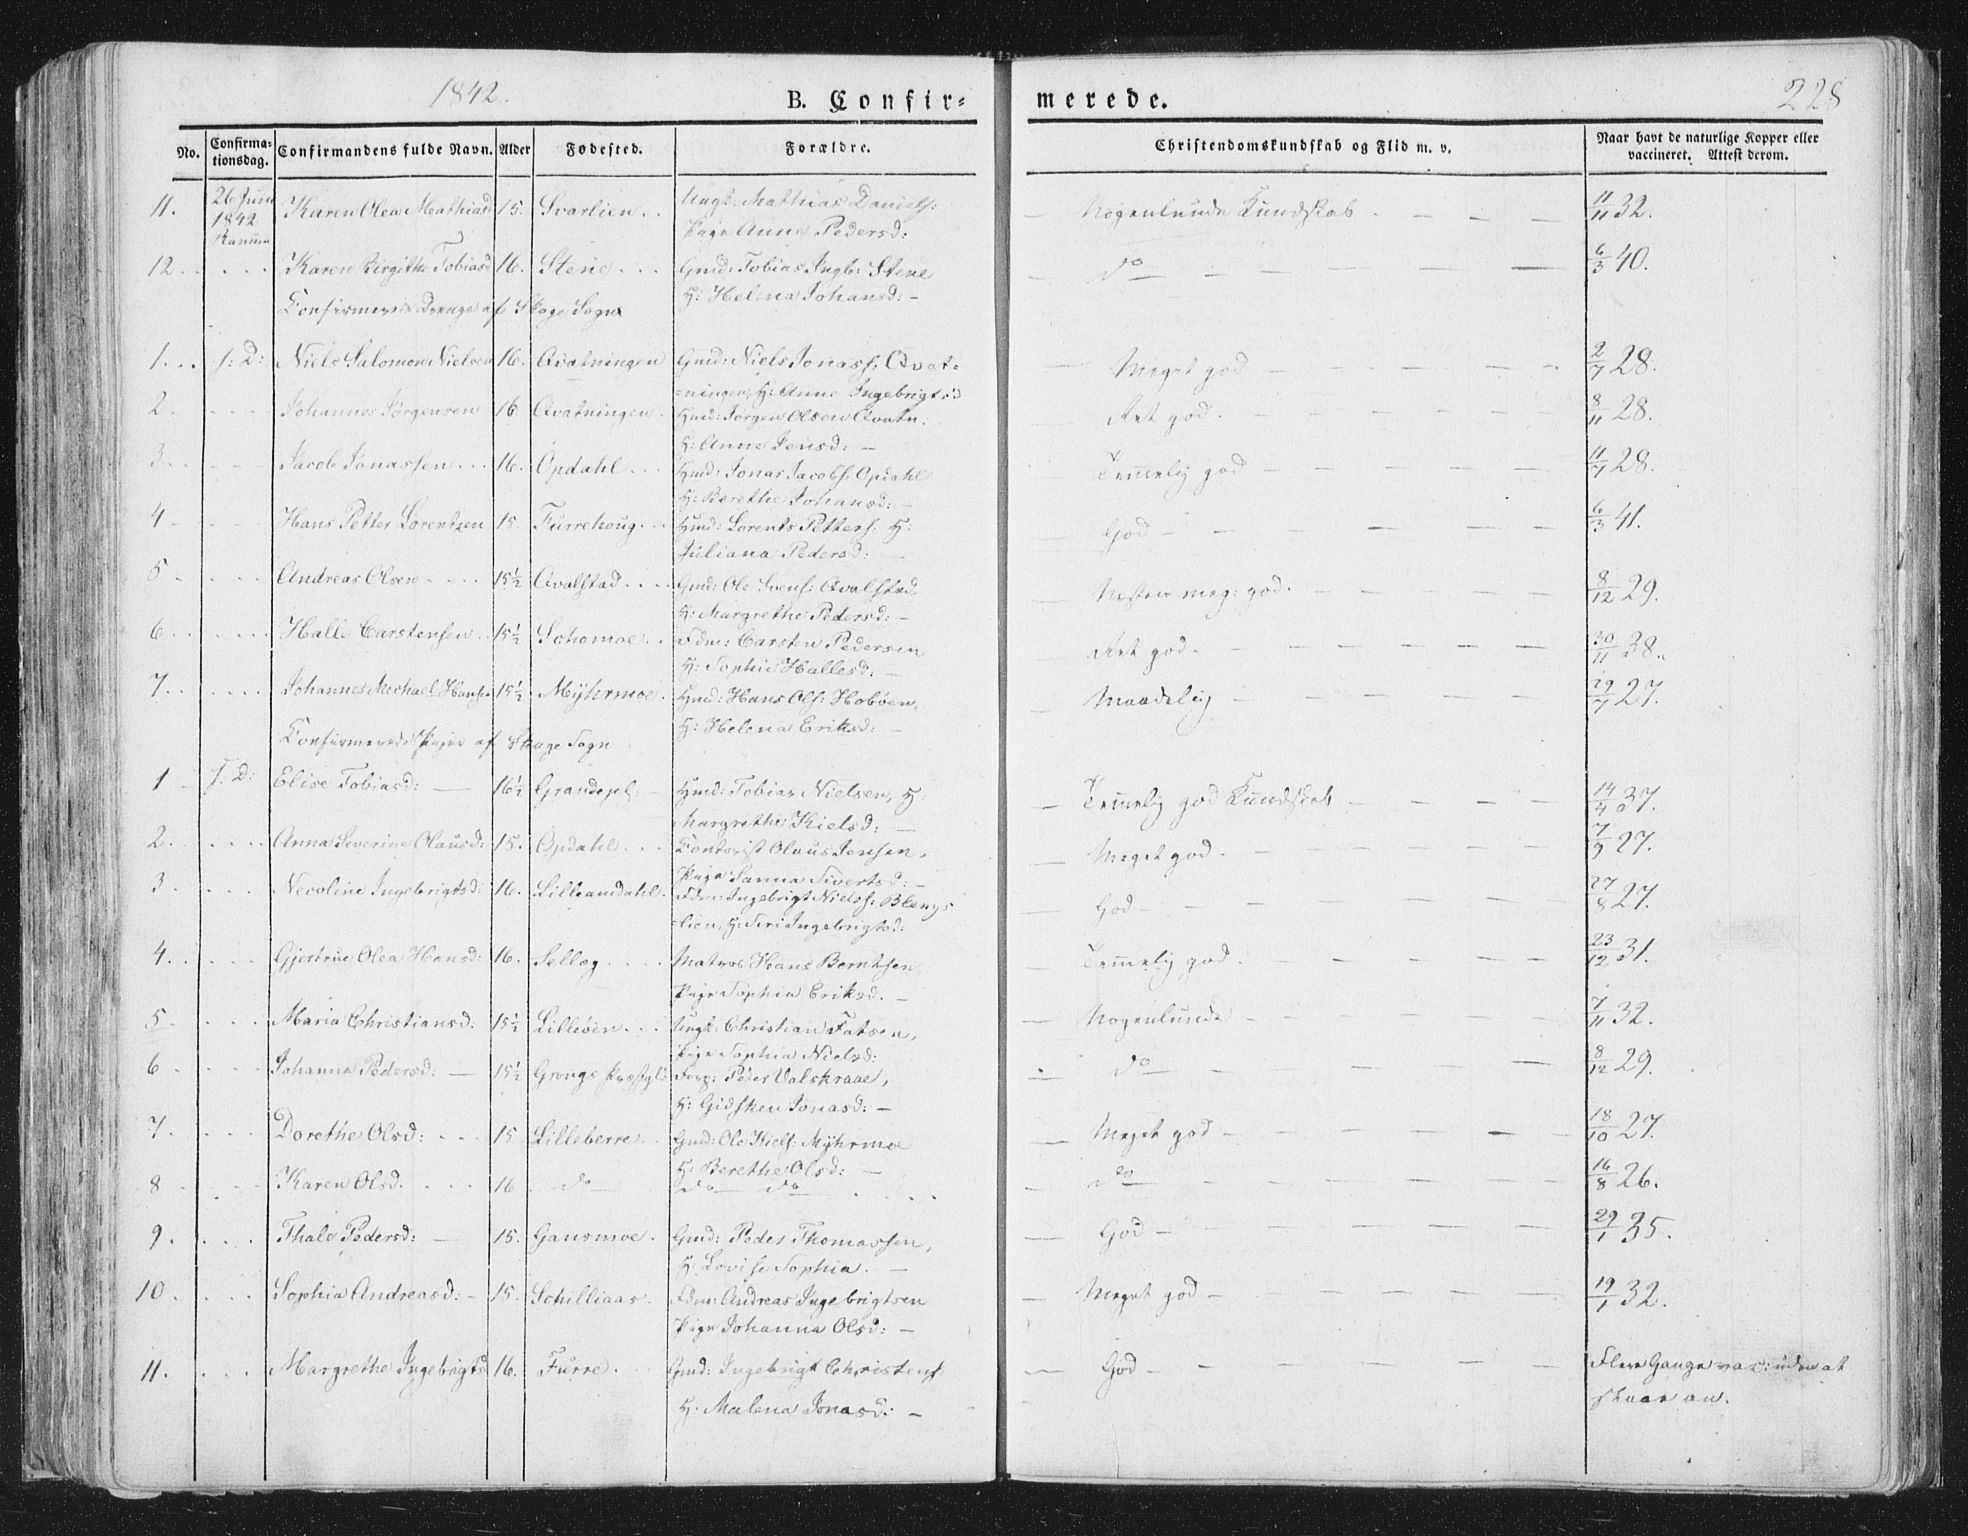 1842.
B. Confir=
merede.
228
No. Confirmationsdag. Confirmandens fulde Navn. Alder Fødested. Forældre. Christendomskundskab og Flid m. v. Naar havt de naturlige Kopper eller vaccineret. Attest derom.
11. 26 Juni 1842 Ranum Karen Olea Mathiasd 15. Svarlien . . Ungk: Mathias Daniels: Nogenlunde Kundskab 11/11 32.
Pige Anne Pedersd:
12. Karen Birgithe Tobiasd 16. Stene . . . Gmd: Tobias Ingb: Stene do 6/3 40.
H: Helena Johansd: -
Confirmerede Drenge af Skage Sogn
1. . . s: D: Niels Salomon Nielsen 16. Qvatningen Gmd: Niels Jonass: Qvat= Meget god 2/7 28.
ningen, H: Anne Ingebrigtsd
2. Johannes Jörgensen 16 Qvatningen. Hmd: Jörgen Olsen Qvatn: Ret god. 8/11 28.
H: Anne Jensd: -
3. . Jacob Jonassen . . . 16. Opdahl . . . Hmd: Jonas Jacobs: Opdahl Temmelig god 11/7 28.
H: Berethe Johansd: -
4 Hans Petter Lorentzen 15. Furrehoug. . . Hmd: Lorents Petters: H: God 6/3 41.
Juliana Pedersd: -
5 Andreas Olsen . . . . 15½ Qvalstad . . . . Gmd: Ole Svens: Qvalstad. Næsten meg: god. 8/12 29.
H: Margrethe Pedersd: -
6. . Halle Carstensen . . 15½ Schomoe . . Fdm: Carsten Pedersen Ret god. 30/11 38.
H: Sophie Hallesd: -
7. . Johannes Michael Hans: 15½ Mÿhrmoe. Hmd: Hans Ols: Hoböen, Maadelig 29/7 27.
H: Helena Eriksd: -
Confirmerede Piger af Skage Sogn
1 s: D: Elise Tobiasd: 16½ Grandepl: Hmd: Tobias Nielsen, H: Temmelig god Kundskab 14/4 37.
Margrethe Kielsd: -
2. Anna Severine Olausd: 15. Opdahl . . . Olaus Jensen, Meget god. 7/9 27.
Pige Sanna Sivertsd: -
3. Nicoline Ingebrigtsd: 16. Lilleamdahl. Fdm: Ingebrigt Niels: God 27/8 27.
lien, H: Siri Ingebrigtsd:
4. Gjertrue Olea Hansd: 16. Selleg . . . . Matros Hans Berntsen Temmelig god. 23/12 31.
Pige Sophia Eriksd. -
5 Maria Christiansd: 15½ Lilleöen . . . Ungk: Christian Fatsen, Nogenlunde 7/11 32.
Pige Sophia Nielsd:
6 Johanna Pedersd: 15½ Grongs Forp: Peder Valskraae, do 8/12 29.
H: Gidsken Jonasd: -
7. Dorethe Olsd: . . . 15 Lilleberre. Gmd: Ole Kiels: Mÿhrmoe Meget god 18/10 27.
H: Berethe Olsd: -
8 Karen Olsd. . . . 16 do do do . . . . do 16/8 26.
9. Thale Pedersd: 15. Gansmoe. Gmd: Peder Thomassen, God 29/1 35.
H: Lovise Sophia. -
10. Sophia Andreasd: 15. Schilliaas. Fdm: Andreas Ingebrigtsen Meget god 19/1 32.
Pige Johanna Olsd: -
11. Margrethe Ingebrigtsd 16. Furre. Gmd: Ingebrigt Christens: God Flere Gange vac: uden at
H: Malena Jonasd: - slaae an.